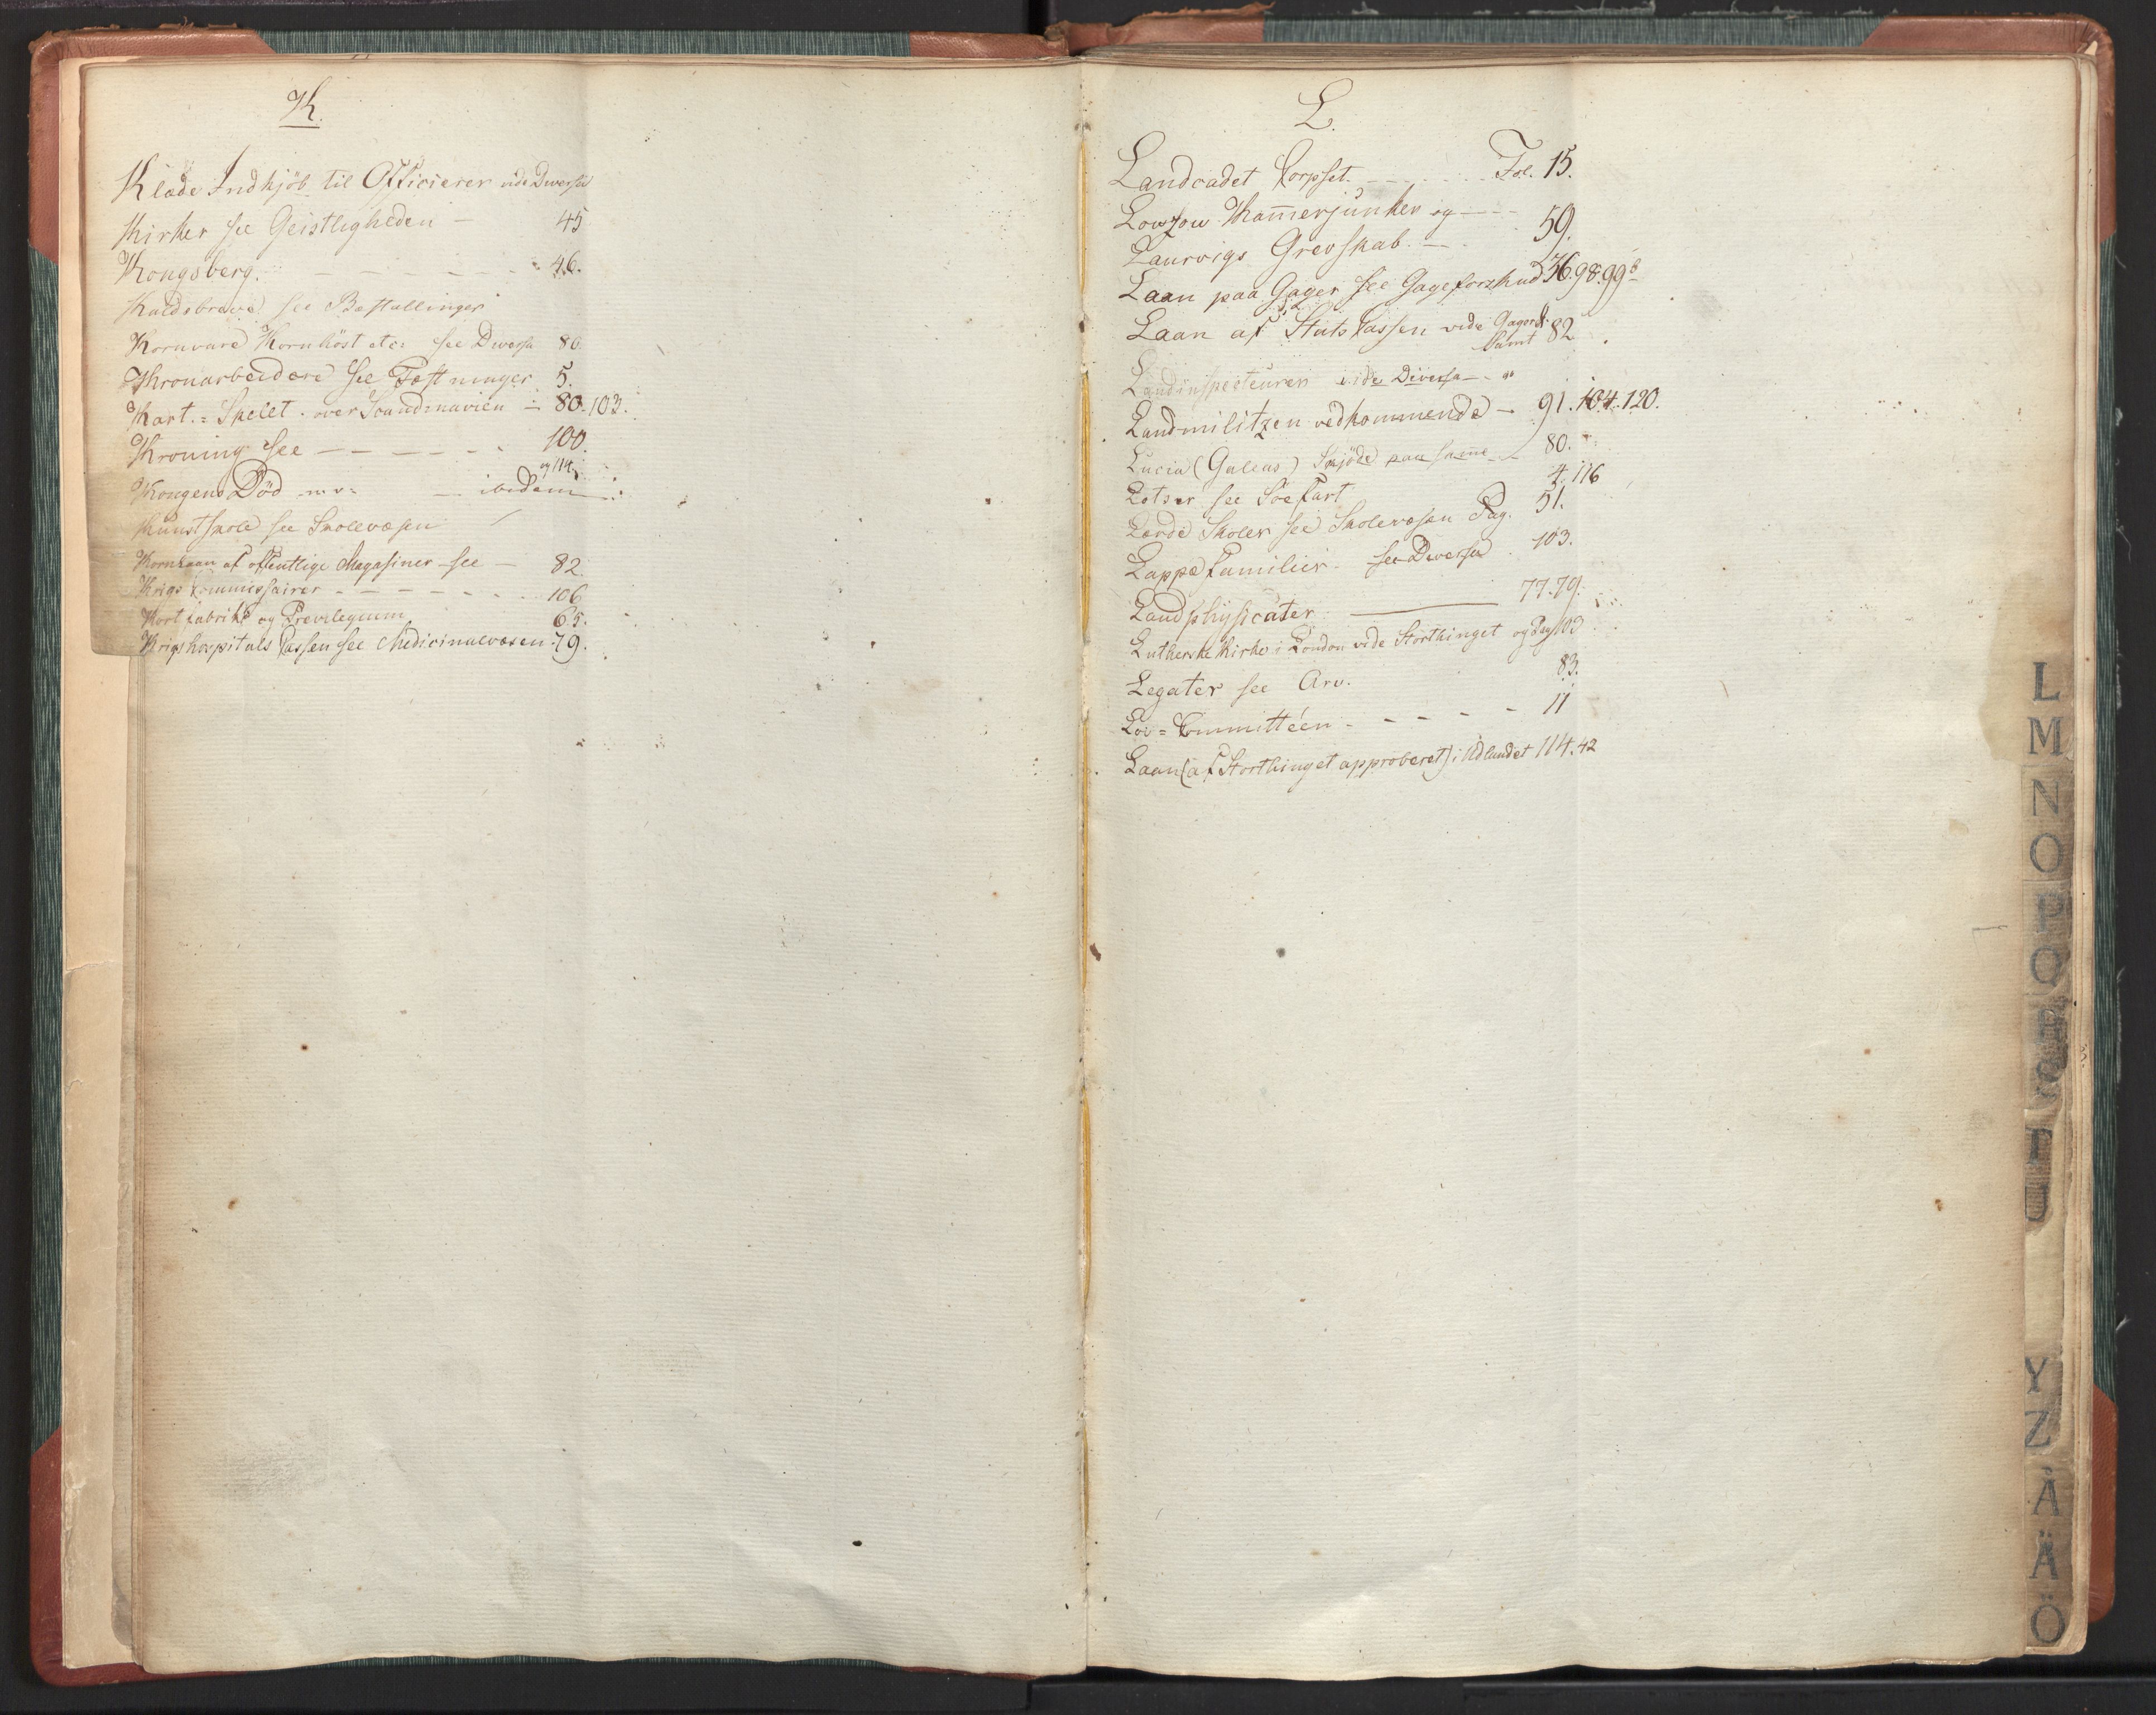 K.
Klæde Indkjöb til Officierer vide Diversa
Kirker see Geistligheden — 45
Kongsberg. — — — — — 46.
Kaldsbreve see Bestallinger
Kornvare Kornhöst etc: see Diversa 80
Kronarbeidere see Fæstninger 5.
Kart.= Skelet. over Scandinavien — 80.103.
Kroning see — — — — — 100.
og 114.
Kongens Död m: v: — ibidem
Kunstskole see Skolevæsen
Kornlaan af offentlige Magasiner see — 82.
Krigs Commissairer — — — — — 106
Kort fabrik og Previlegium 65.
Krigshospitals Cassen see Medicinalvæsen 79.
L.
Landcadet Corpset. — — — Fol. 15.
Lowzow Kam̄erjunker og — —
Laurvigs Grevskab. — 59.
Laan paa Gager see Gageforskud 36.98.99
Laan af Stats Cassen vide Gager &
samt 82.
Landinspecteuren vide Diversa —
Landmilitzen vedkommende — 91.104.120.
Lucia (Galeas) Skjöde paa sam̄e — 80.
Lotser see Söefart 4.116
Lærde Skoler see Skolevæsen Pag. 51.
Lappe Familier. see Diversa 103.
Landphysicater — 77.79.
Lutherske Kirke i London vide Storthinget og Pag 103
Legater see Arv. 83.
Lov=Committéen — — — — — 11
Laan (af Storthinget approberet) i Udlandet 114.42
L
M
N
O
P
Q
R
S
T
U
Y
Z
Å
Ä
Ö